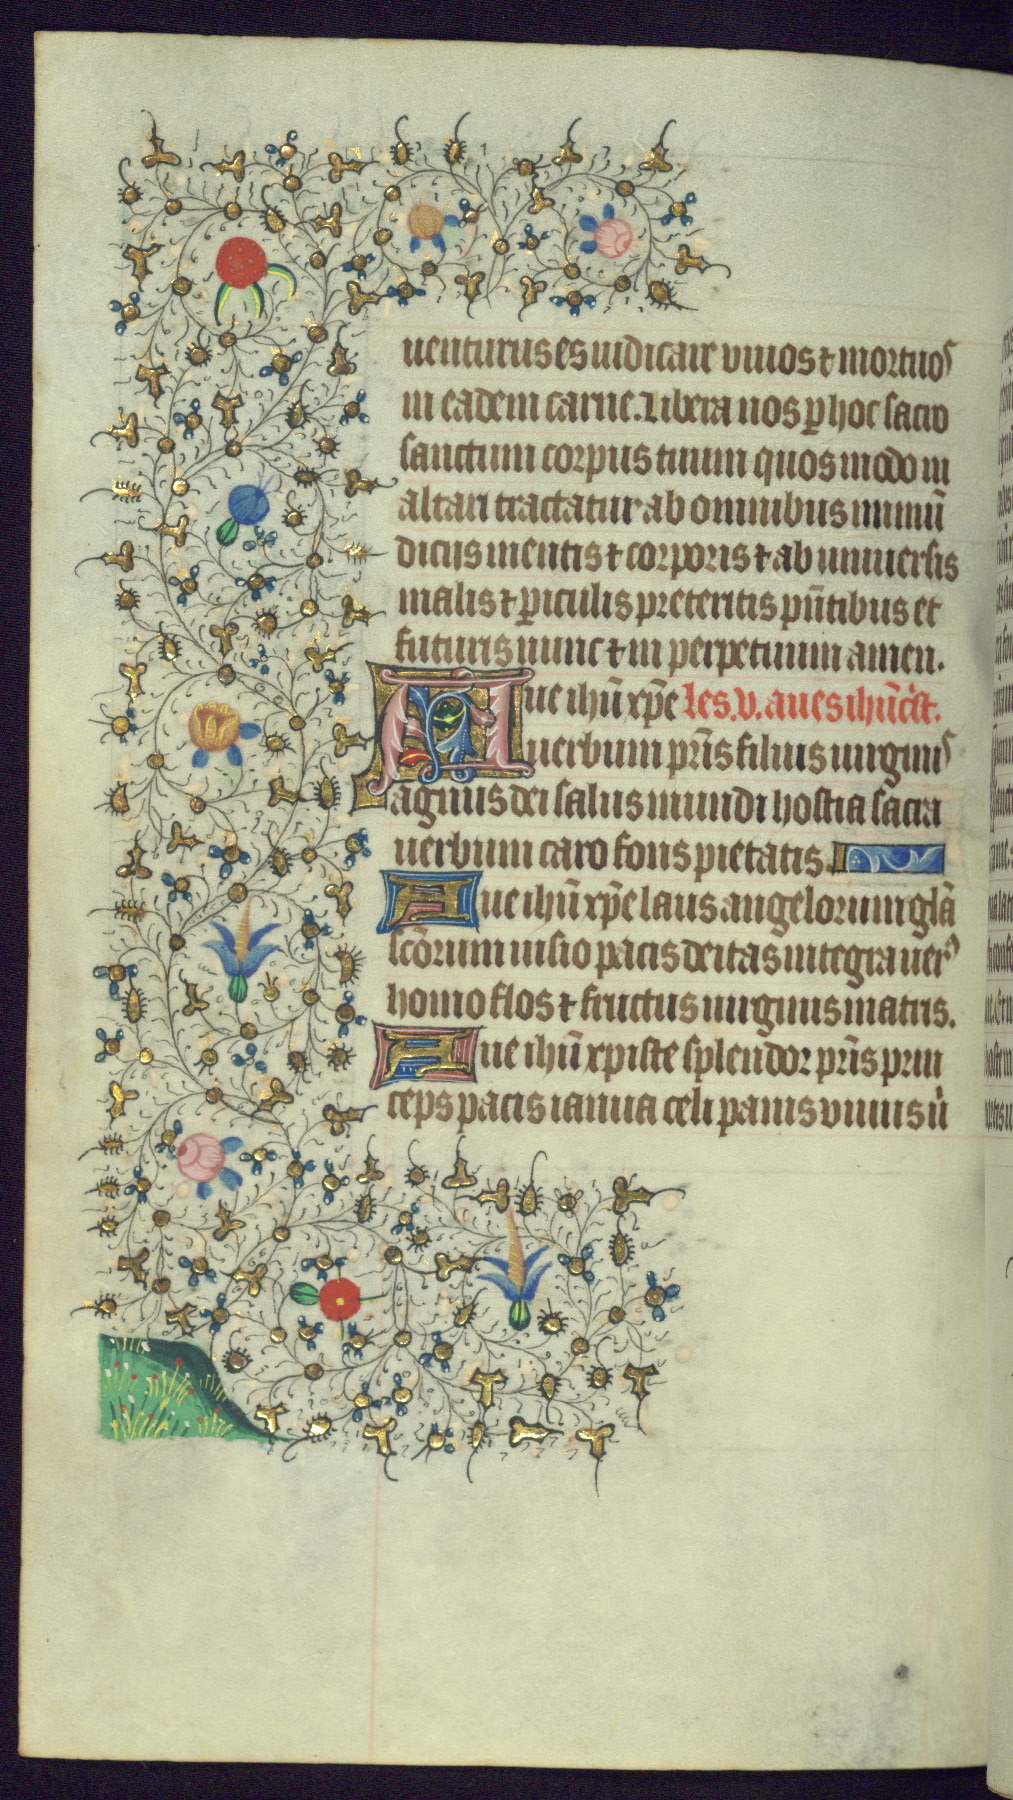 uenturus es iudicare viuos ⁊ mortuos
in eadem carne. Libera nos ꝑ hoc sacro
sanctum corpus tuum quos modo in
altari tractatur ab omnibus inmũ
diciis mentis ⁊ corporis ⁊ ab uniuersis
malis ⁊ ꝑiculis preteritis pñtibus et
futuris nunc ⁊ in perpetuum amen.
Aue ihũ xp̃e les .v. aues ihũ c̃st.
uerbum pr̃is filius uirginis
agnus dei salus mundi hostia sacra
uerbum caro fons pietatis.
Aue ihũ xp̃e laus angelorum gl̃a
sc̃orum uisio pacis deitas integra uerꝰ
homo flos ⁊ fructus uirginis matris.
Aue ihũ xpiste splendor pr̃is prin
ceps pacis ianua celi panis viuus ũ